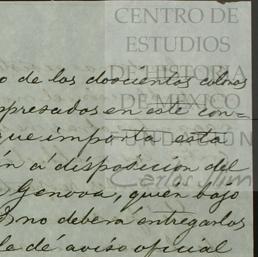 CENTRO DE
ESTUDIOS
DE HISTORIA
DE MÉXICO
FUNDACIÓN
Carlos Slim
o de los doscientos
presados en este con-
que importa esta
n á disposicion del
Genova, quien bajo
no deberá entregarlos
le dé aviso oficial